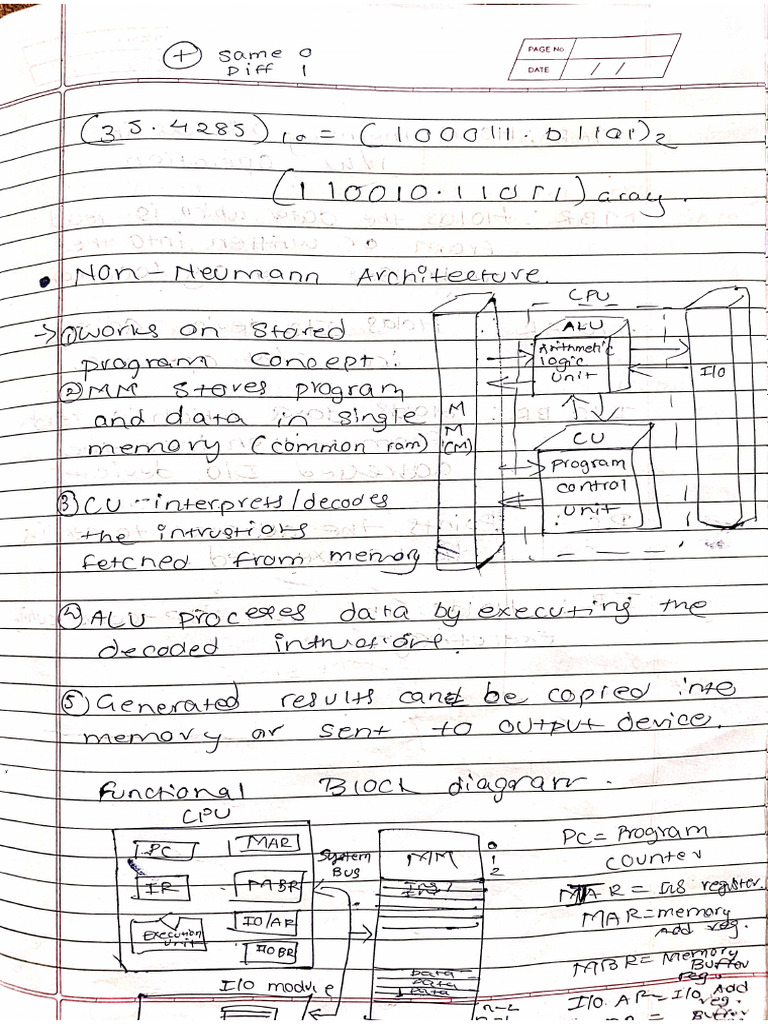 ⊕ Same 0
Diff 1
PAGE No
DATE / /
(35.4285)10 = (100011.011101)2
(110010.11011) aray.
• Non-Neumann Architecture.
→ ① works on stored
program concept.
② MM stores program
and data in single
memory (common ram)
③ CU - interprets/decodes
the intrustions
fetched from memory
④ ALU proceses data by executing the
decoded
⑤ Generated results can be copied into
memory or sent to output device.
CPU
ALU
Arithmetic
logic
unit
I/O
M
M
(M)
CU
program
control
unit
Functional Block diagram.
CPU
PC
MAR
IR
MBR
Execution
unit
IO/AR
I/OBR
System
Bus
MM
0
1
2
Data
Data
Data
n-2
n-1
I/O module
PC = Program
counter
= Ins register
MAR = memory
Add reg.
MBR = Memory
Buffer
Reg.
I/O AR = I/O Add
reg.
= Buffer